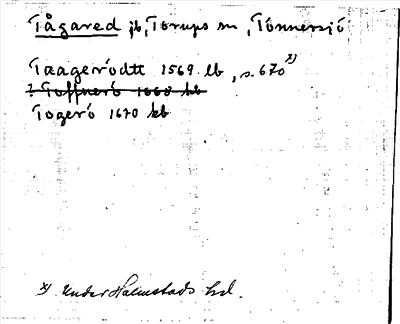 Tågared jb, Torups sn, Tönnersjö
Taagerödtt 1569 lb, s. 670 x)
? Toffnerö 1668 kb
Togerö 1670 kb
x) Under Halmstads hd.